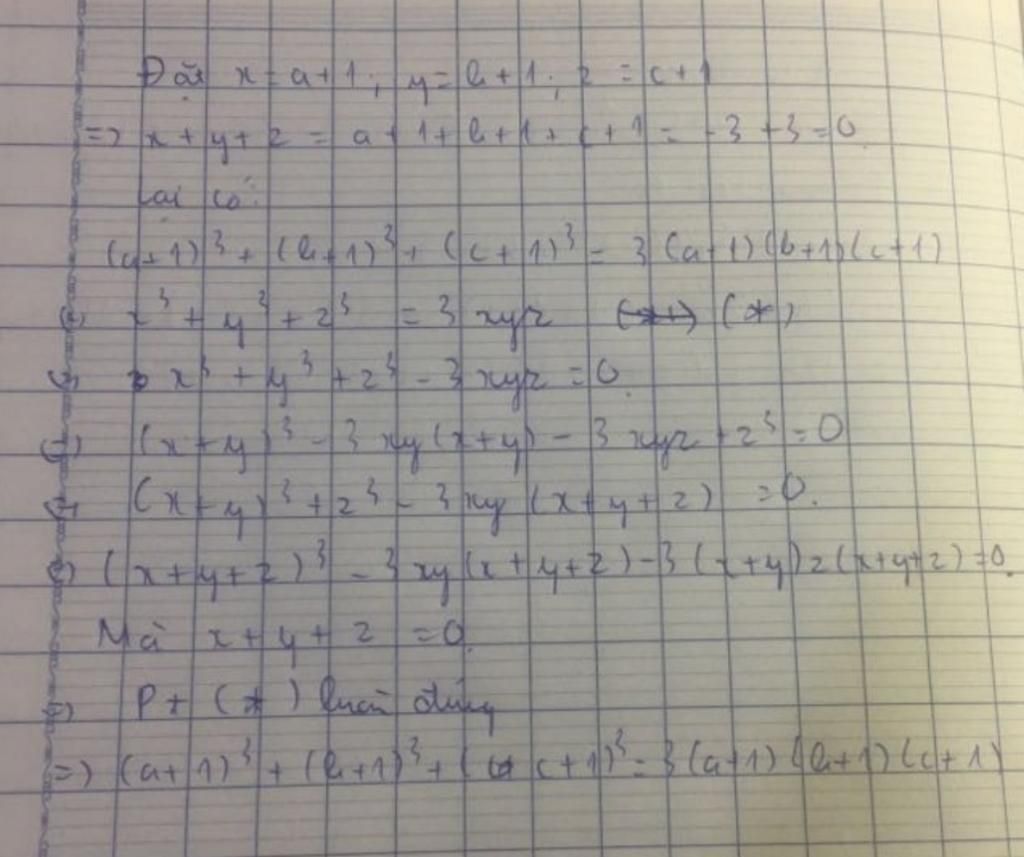 Đặt x = a + 1 ; y = b + 1 ; z = c + 1
=> x + y + z = a + 1 + b + 1 + c + 1 = -3 + 3 = 0.
Lại có:
(a+1)³ + (b+1)³ + (c+1)³ = 3(a+1)(b+1)(c+1)
(=) x³ + y³ + z³ = 3xyz (*)
(=) x³ + y³ + z³ - 3xyz = 0.
(=) (x+y)³ - 3xy(x+y) - 3xyz + z³ = 0
(=) (x+y)³ + z³ - 3xy(x+y+z) = 0.
(=) (x+y+z)³ - 3xy(x+y+z) - 3(x+y)z(x+y+z) = 0.
Mà x + y + z = 0.
=) Pt (*) luôn đúng
=) (a+1)³ + (b+1)³ + (c+1)³ = 3(a+1)(b+1)(c+1)